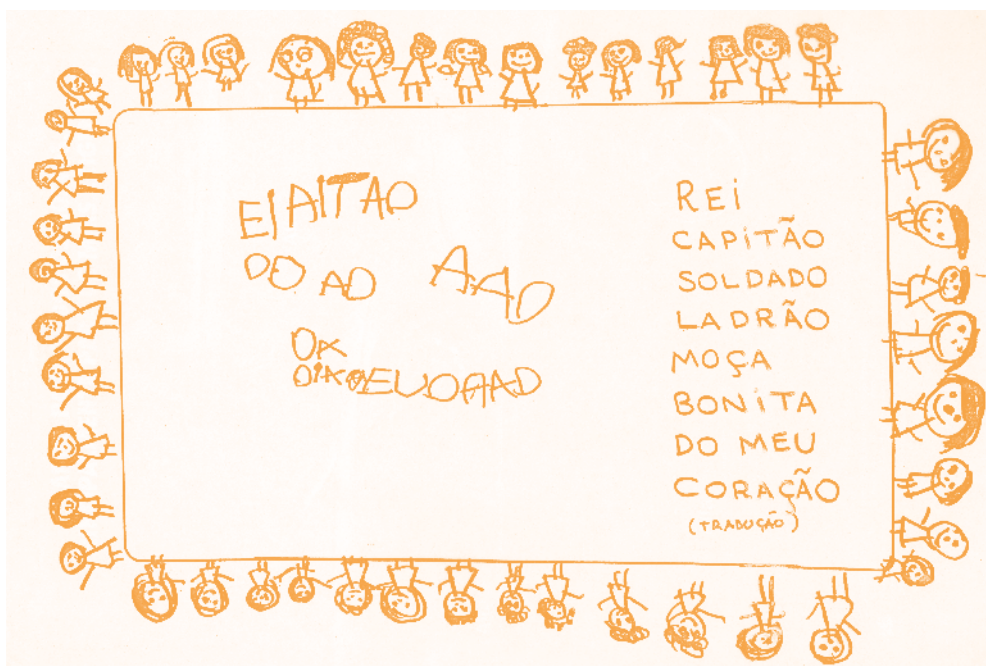 EI AITAO
DO AD AAO
OA
REI
CAPITÃO
SOLDADO
LADRÃO
MOÇA
BONITA
DO MEU
CORAÇÃO
(TRADUÇÃO)